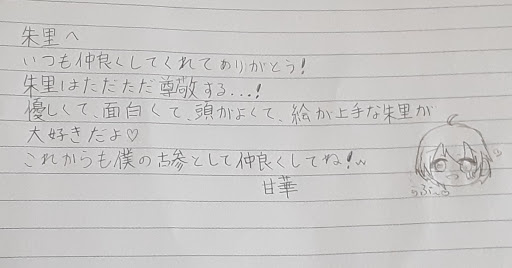 朱里へ
いつも仲良くしてくれてありがとう!
朱里はただただ尊敬する...!
優しくて、面白くて、頭がよくて、絵が上手な朱里が
大好きだよ♡
これからも僕の古参として仲良くしてね!w
甘華